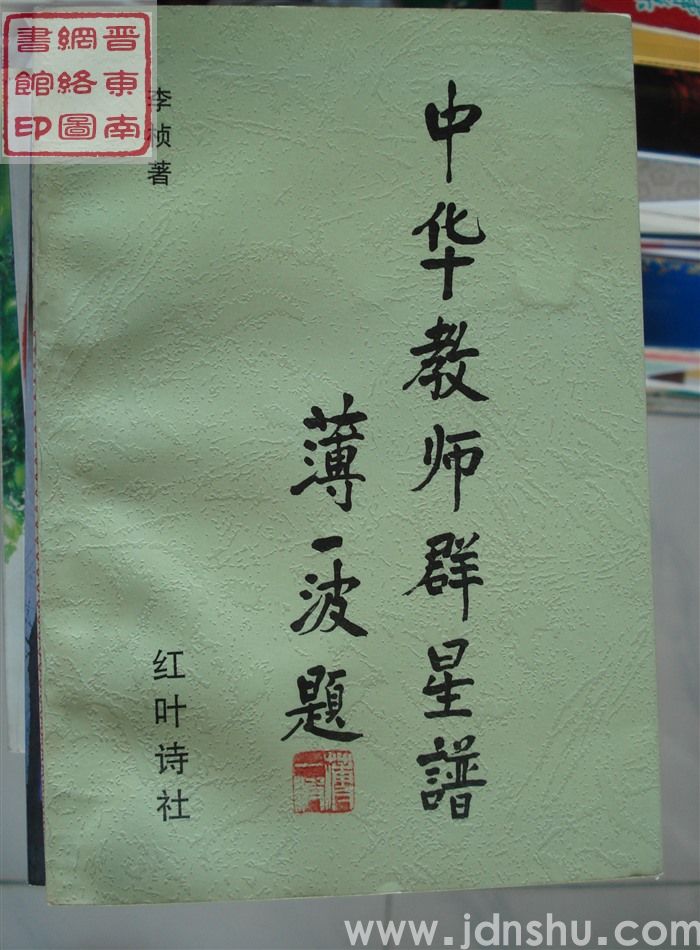 晋東南
網絡圖
書館印
中华教师群星譜
薄一波題
李桢著
红叶诗社
www.jdnshu.com